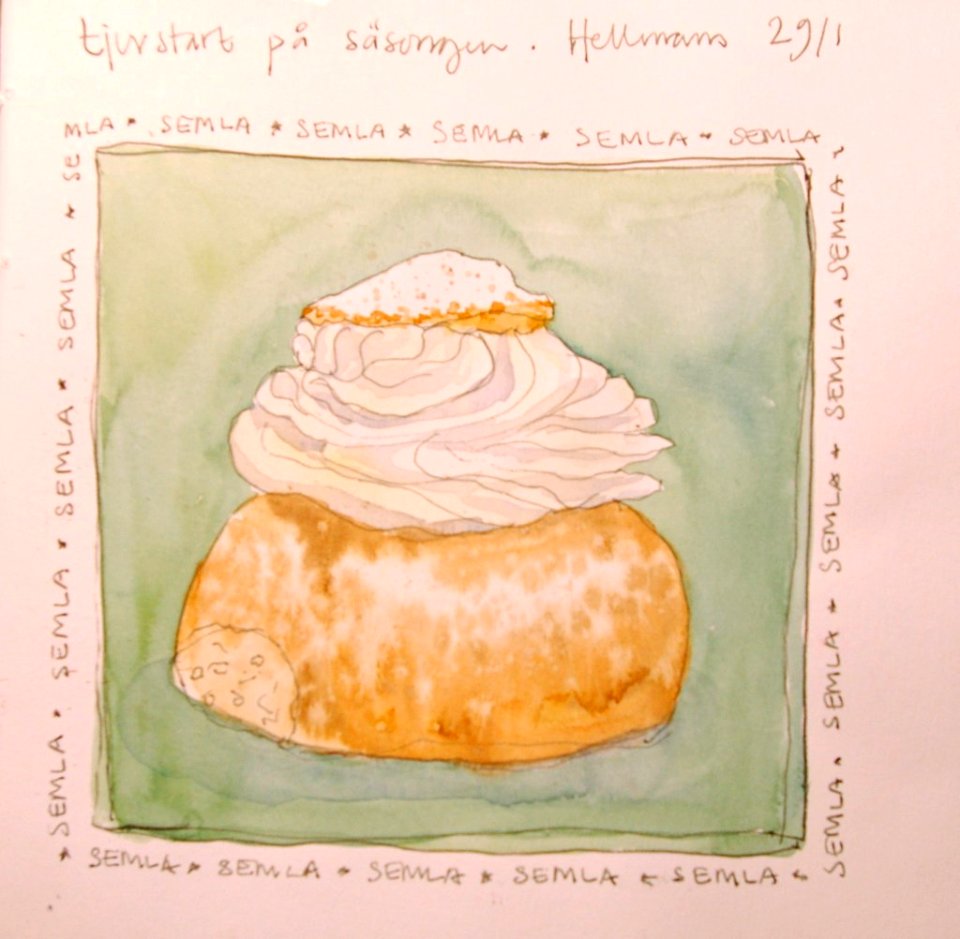 tjuvstart på säsongen. Hellmans 29/1
MLA * SEMLA * SEMLA * SEMLA * SEMLA * SEMLA
SEMLA * SEMLA * SEMLA * SEMLA * SE
SEMLA * SEMLA * SEMLA * SEMLA * SEMLA
* SEMLA * SEMLA * SEMLA * SEMLA * SEMLA *